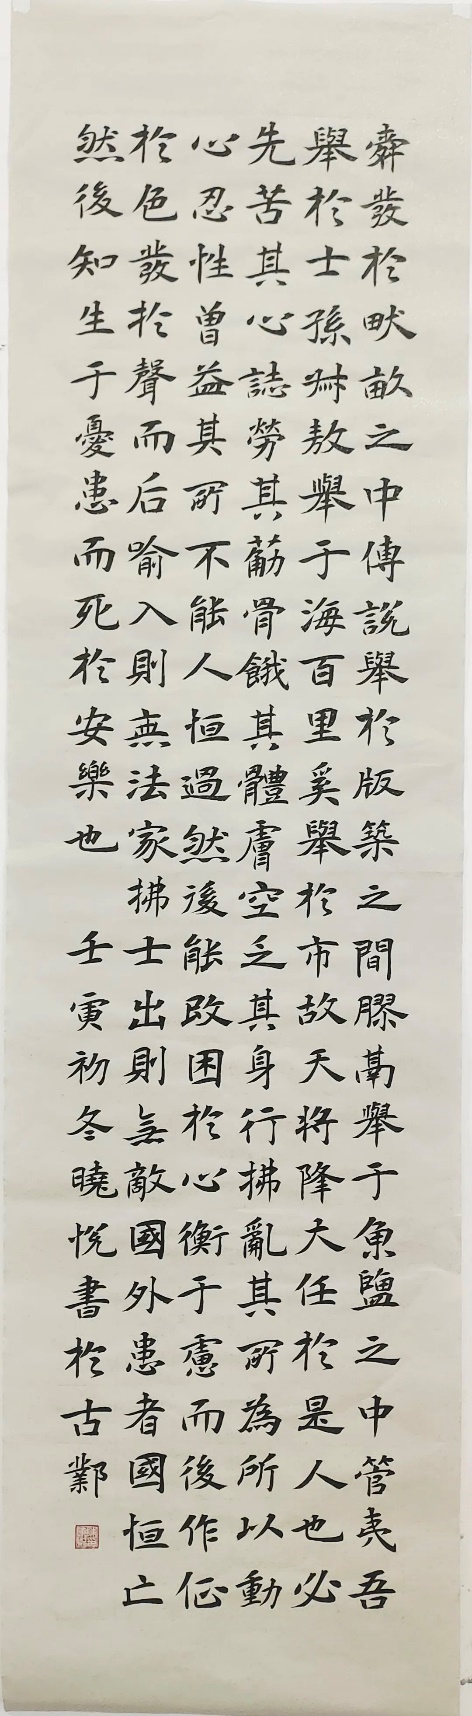 舜發於畎畝之中傅說舉於版築之間膠鬲舉于魚鹽之中管夷吾
舉於士孫叔敖舉于海百里奚舉於市故天將降大任於是人也必
先苦其心誌勞其筋骨餓其體膚空乏其身行拂亂其所為所以動
心忍性曾益其所不能人恒過然後能改困於心衡于慮而後作征
於色發於聲而后喻入則無法家拂士出則無敵國外患者國恒亡
然後知生于憂患而死於安樂也 壬寅初冬曉悅書於古鄴